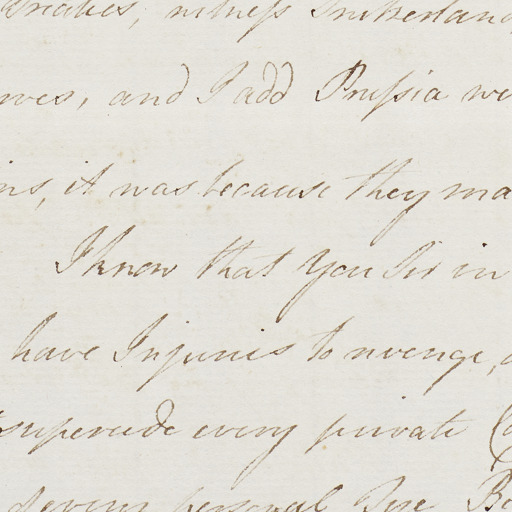 witness Switzerland
and I add Prussia
it was because they
I know that You Sir in
have Injuries to revenge,
supersede every private
personal